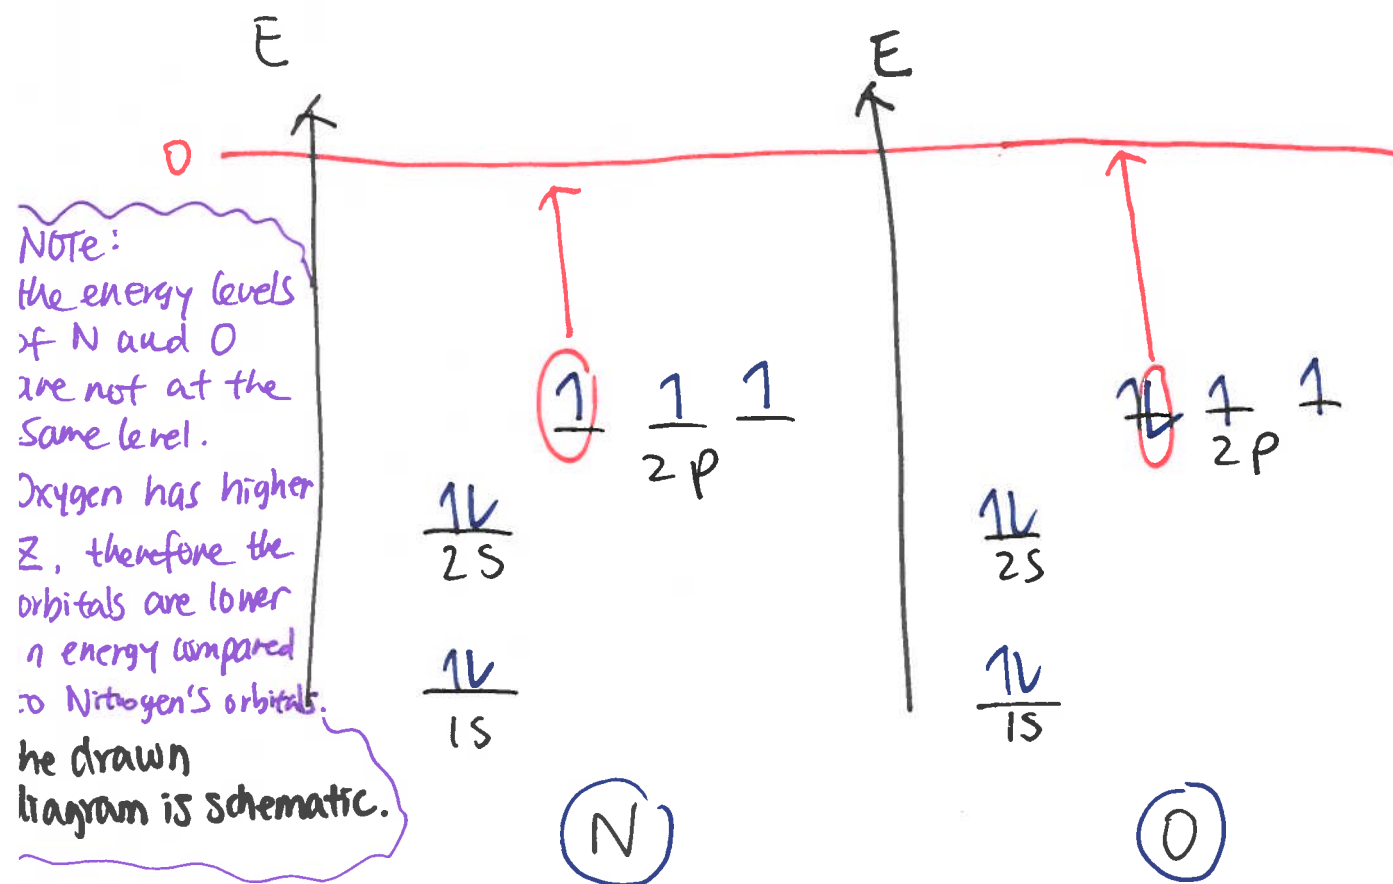 E
E
0
NOTE:
the energy levels
of N and O
are not at the
same level.
Oxygen has higher
Z, therefore the
orbitals are lower
n energy compared
to Nitrogen's orbitals.
he drawn
diagram is schematic.
1 1 1
2p
1L
2s
1L
1s
N
1L 1 1
2p
1L
2s
1L
1s
O